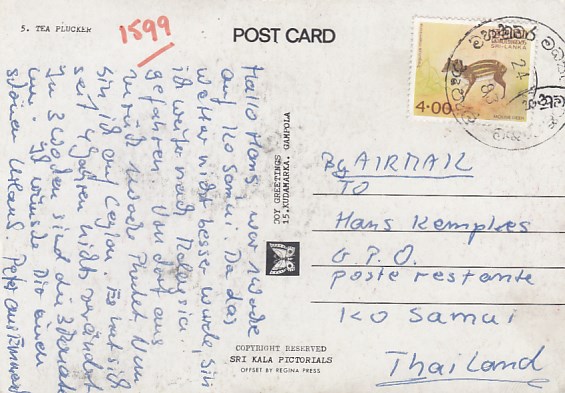 5. TEA PLUCKER
1599
POST CARD
ශ්‍රී ලංකා
SRI-LANKA
4.00
24
83
Hallo Hans, war 1 Woche
auf Ko Samui. Da das
Wetter nicht besser wurde, bin
ich weiter nach Malaysia
gefahren. Von dort aus
zurück nach Phuket. Nun
bin ich auf Ceylon. Es hat sich
seit 4 Jahren nichts verändert
In 3 Wochen sind die 3 Monate
um. Ich wünsche Dir auch
schönen Urlaub Peter aus
JOY GREETINGS
15, KUDAMARKA, GAMPOLA
By AIRMAIL
TO
Hans Kempkes
G.P.O.
Poste restante
KO Samui
Thailand
COPYRIGHT RESERVED
SRI KALA PICTORIALS
OFFSET BY REGINA PRESS